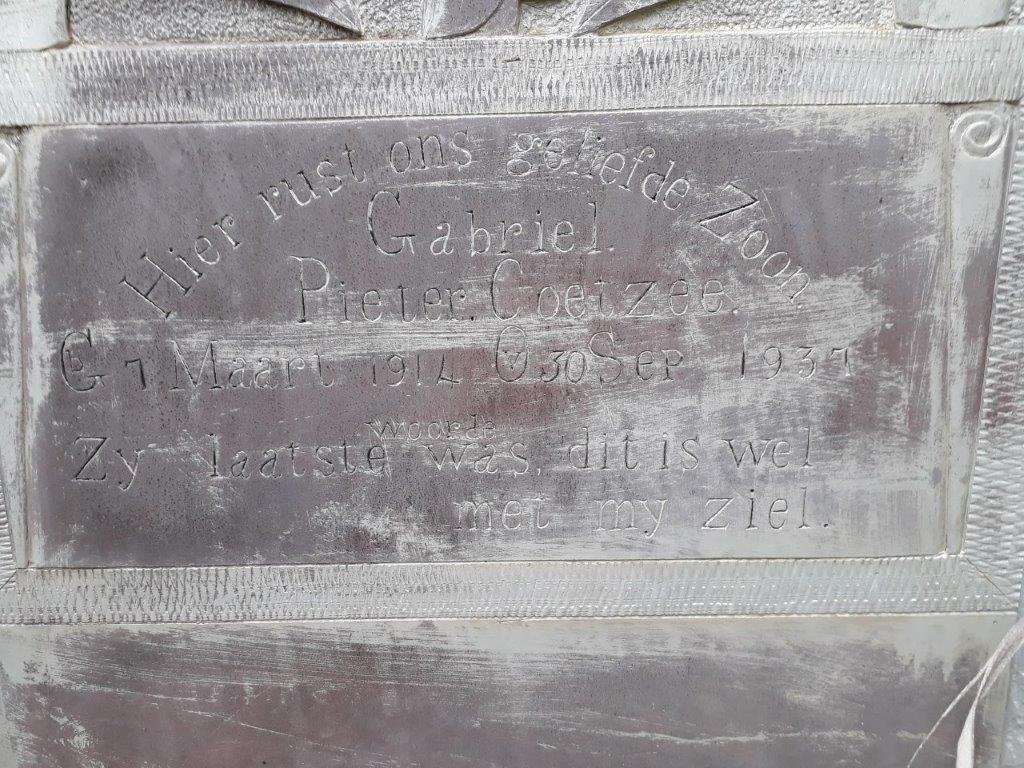 Hier rust ons geliefde Zoon
Gabriel.
Pieter. Coetzee.
G 7 Maart 1914 O 30 Sep 1937
woorde
Zy laatste was, dit is wel
met my ziel.